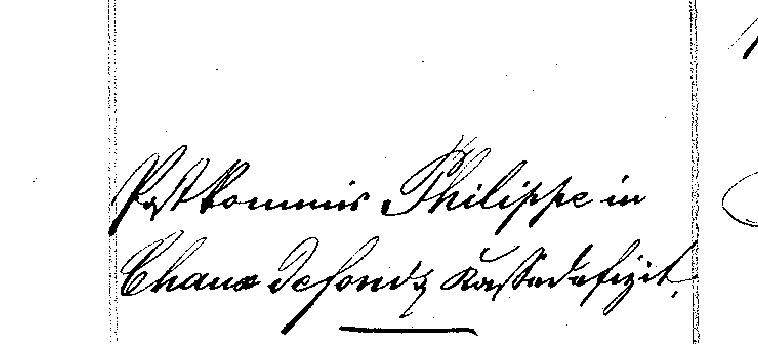 Postkommis Philippe in
Chaux de fonds Kassadefizit,